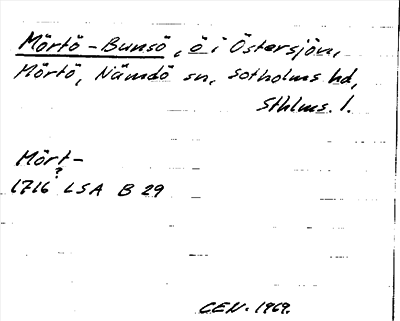 Mörtö-Bunsö, ö i Östersjön,
Mörtö, Nämdö sn, Sotholms hd,
Sthlms. l.
Mört-
?
1716 LSA B 29
C.E.N. 1969.